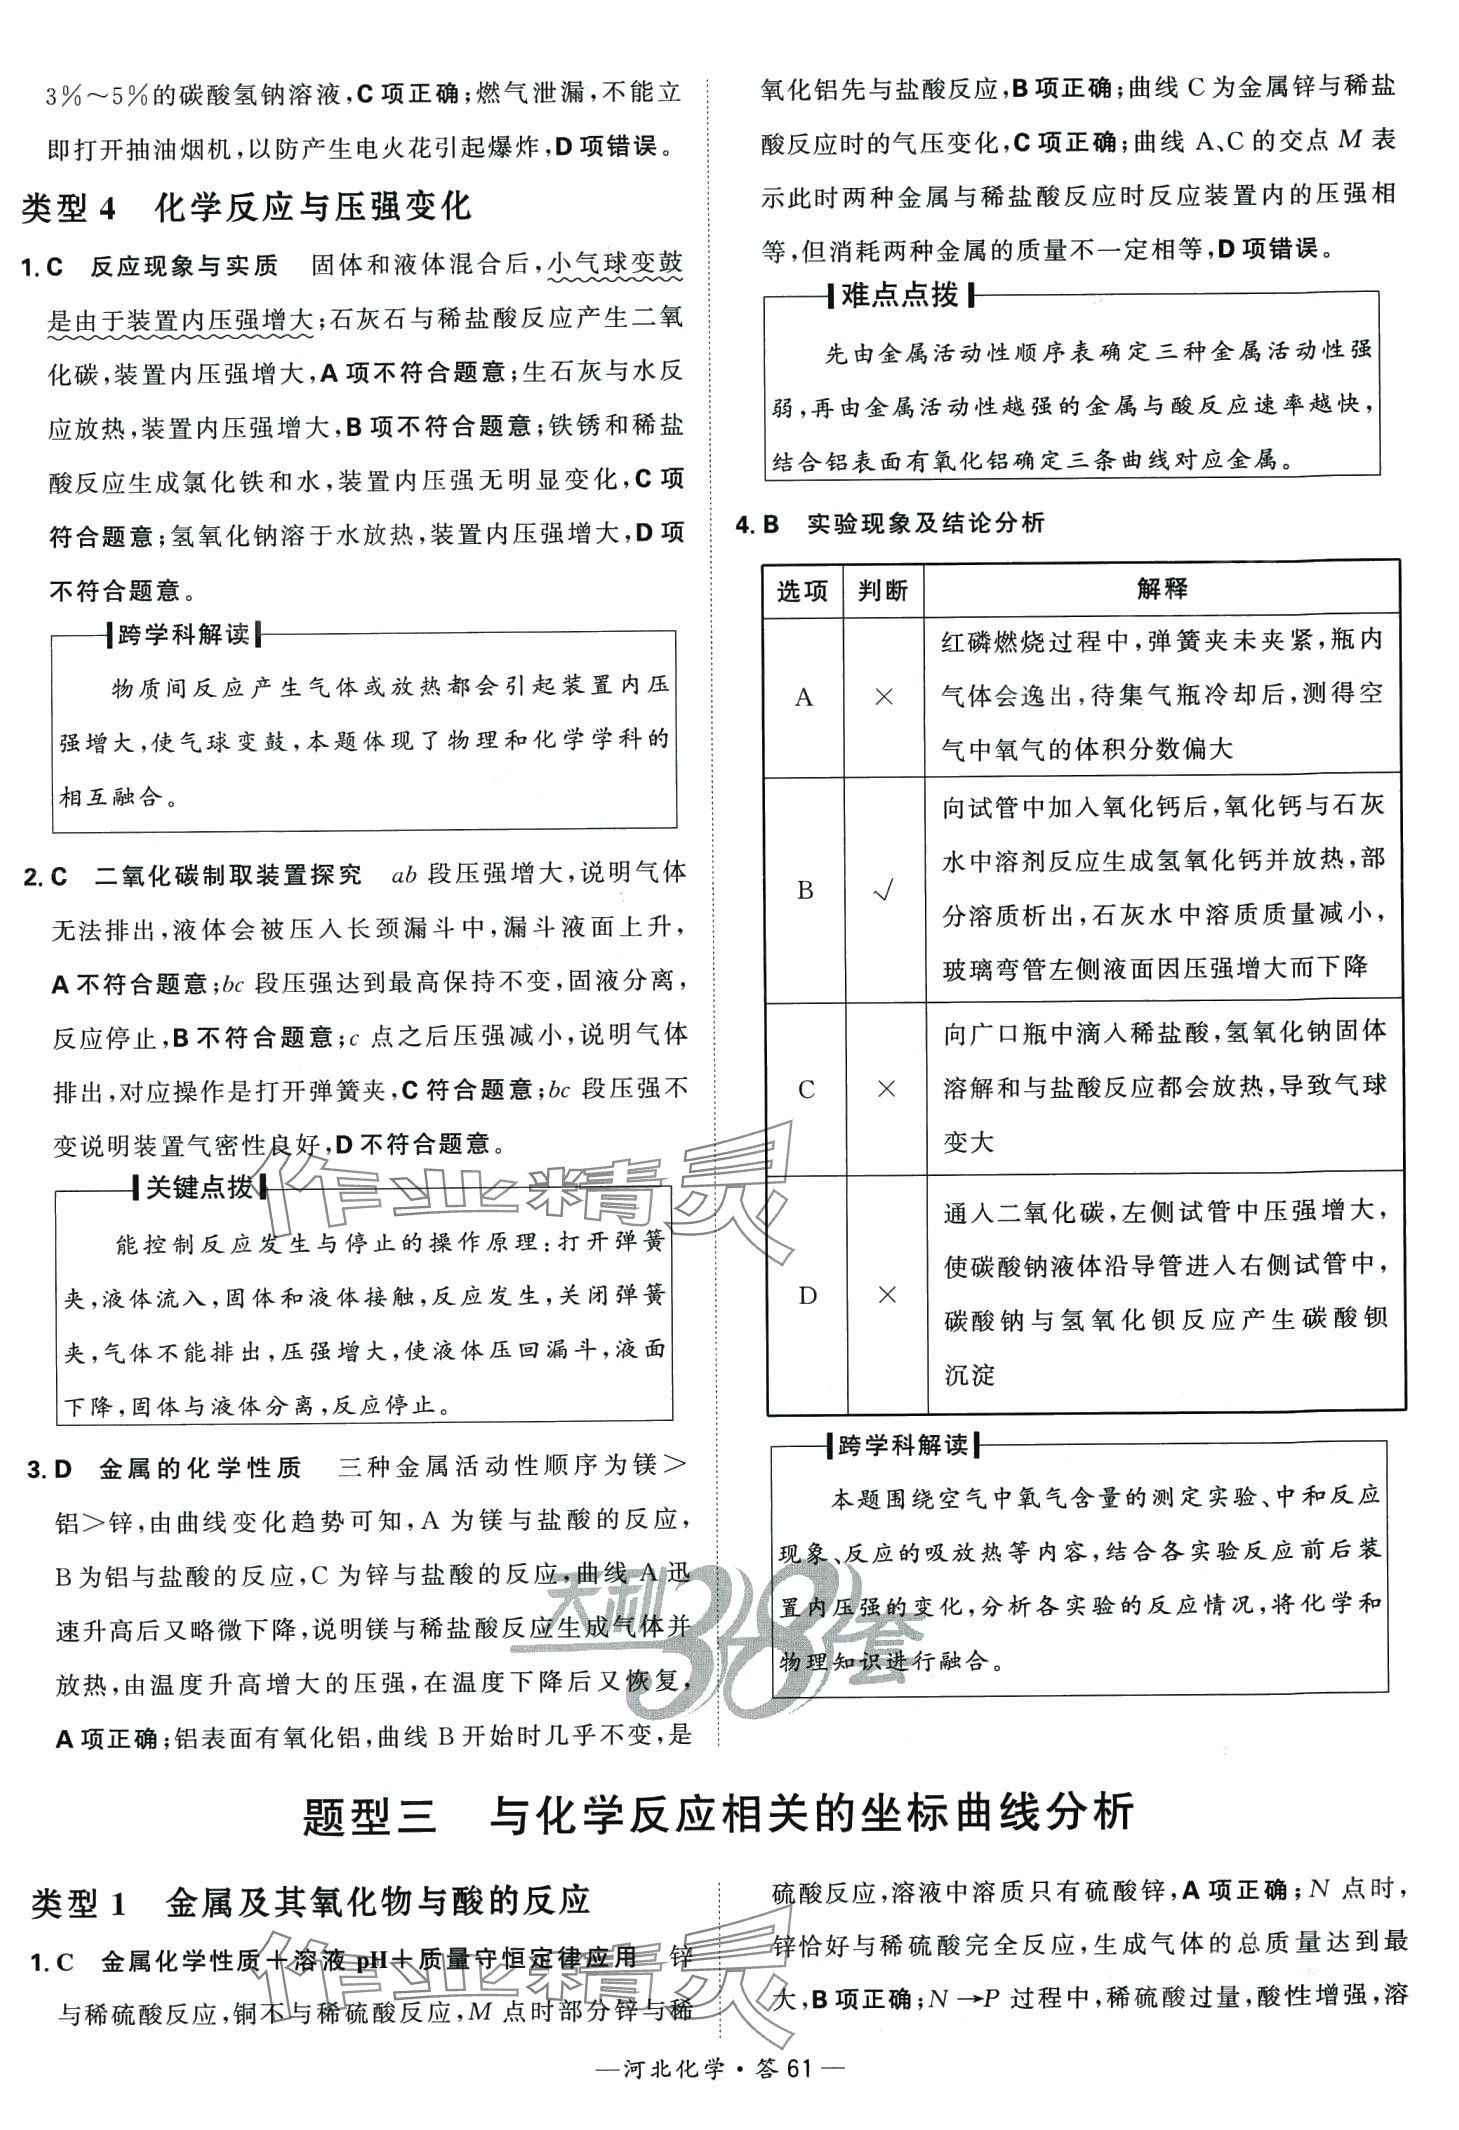 3%～5%的碳酸氢钠溶液,C项正确;燃气泄漏,不能立
即打开抽油烟机,以防产生电火花引起爆炸,D项错误。
类型4 化学反应与压强变化
1. C 反应现象与实质 固体和液体混合后,小气球变鼓
是由于装置内压强增大;石灰石与稀盐酸反应产生二氧
化碳,装置内压强增大,A项不符合题意;生石灰与水反
应放热,装置内压强增大,B项不符合题意;铁锈和稀盐
酸反应生成氯化铁和水,装置内压强无明显变化,C项
符合题意;氢氧化钠溶于水放热,装置内压强增大,D项
不符合题意。
跨学科解读
物质间反应产生气体或放热都会引起装置内压
强增大,使气球变鼓,本题体现了物理和化学学科的
相互融合。
2. C 二氧化碳制取装置探究 ab段压强增大,说明气体
无法排出,液体会被压入长颈漏斗中,漏斗液面上升,
A不符合题意;bc段压强达到最高保持不变,固液分离,
反应停止,B不符合题意;c点之后压强减小,说明气体
排出,对应操作是打开弹簧夹,C符合题意;bc段压强不
变说明装置气密性良好,D不符合题意。
关键点拨
能控制反应发生与停止的操作原理:打开弹簧
夹,液体流入,固体和液体接触,反应发生,关闭弹簧
夹,气体不能排出,压强增大,使液体压回漏斗,液面
下降,固体与液体分离,反应停止。
3. D 金属的化学性质 三种金属活动性顺序为镁＞
铝＞锌,由曲线变化趋势可知,A为镁与盐酸的反应,
B为铝与盐酸的反应,C为锌与盐酸的反应,曲线A迅
速升高后又略微下降,说明镁与稀盐酸反应生成气体并
放热,由温度升高增大的压强,在温度下降后又恢复,
A项正确;铝表面有氧化铝,曲线B开始时几乎不变,是
氧化铝先与盐酸反应,B项正确;曲线C为金属锌与稀盐
酸反应时的气压变化,C项正确;曲线A、C的交点M表
示此时两种金属与稀盐酸反应时反应装置内的压强相
等,但消耗两种金属的质量不一定相等,D项错误。
难点点拨
先由金属活动性顺序表确定三种金属活动性强
弱,再由金属活动性越强的金属与酸反应速率越快,
结合铝表面有氧化铝确定三条曲线对应金属。
4. B 实验现象及结论分析
选项 判断 解释
红磷燃烧过程中,弹簧夹未夹紧,瓶内
A × 气体会逸出,待集气瓶冷却后,测得空
气中氧气的体积分数偏大
向试管中加入氧化钙后,氧化钙与石灰
水中溶剂反应生成氢氧化钙并放热,部
B √ 分溶质析出,石灰水中溶质质量减小,
玻璃弯管左侧液面因压强增大而下降
向广口瓶中滴入稀盐酸,氢氧化钠固体
C × 溶解和与盐酸反应都会放热,导致气球
变大
通入二氧化碳,左侧试管中压强增大,
使碳酸钠液体沿导管进入右侧试管中,
D × 碳酸钠与氢氧化钡反应产生碳酸钡
沉淀
跨学科解读
本题围绕空气中氧气含量的测定实验、中和反应
现象、反应的吸放热等内容,结合各实验反应前后装
置内压强的变化,分析各实验的反应情况,将化学和
物理知识进行融合。
作业精灵
天利38套
题型三 与化学反应相关的坐标曲线分析
类型1 金属及其氧化物与酸的反应
1. C 金属化学性质＋溶液pH＋质量守恒定律应用 锌
与稀硫酸反应,铜不与稀硫酸反应,M点时部分锌与稀
硫酸反应,溶液中溶质只有硫酸锌,A项正确;N点时,
锌恰好与稀硫酸完全反应,生成气体的总质量达到最
大,B项正确;N→P过程中,稀硫酸过量,酸性增强,溶
作业精灵
—河北化学·答61—